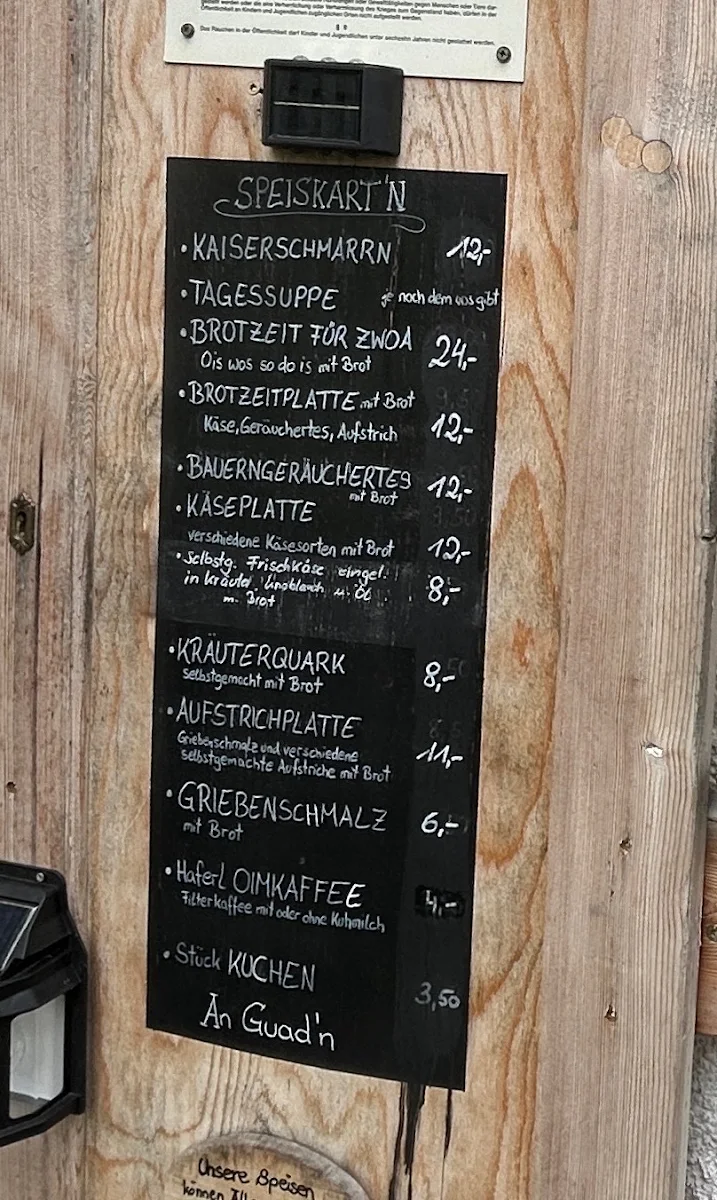 gestellt werden oder die eine Verherrlichung oder Verharmlosung des Krieges zum Gegenstand haben, dürfen in der
Öffentlichkeit an Kindern und Jugendlichen zugänglichen Orten nicht aufgestellt werden.
Das Rauchen in der Öffentlichkeit darf Kinder und Jugendlichen unter sechzehn Jahren nicht gestattet werden.
SPEISKART'N
• KAISERSCHMARRN 12,-
• TAGESSUPPE je noch dem wos gibt
• BROTZEIT FÜR ZWOA 24,-
Ois wos so do is mit Brot
• BROTZEITPLATTE mit Brot
Käse, Geräuchertes, Aufstrich 12,-
• BAUERNGERÄUCHERTES 12,-
mit Brot
• KÄSEPLATTE
verschiedene Käsesorten mit Brot 12,-
• Selbstg. Frischkäse eingel.
in Kräuter Knoblauch u. Öl 8,-
m. Brot
• KRÄUTERQUARK 8,-
selbstgemacht mit Brot
• AUFSTRICHPLATTE
Griebenschmalz und verschiedene 11,-
selbstgemachte Aufstriche mit Brot
• GRIEBENSCHMALZ 6,-
mit Brot
• Haferl OIMKAFFEE 4,-
Filterkaffee mit oder ohne Kuhmilch
• Stück KUCHEN 3,50
An Guad'n
Unsere Speisen
können